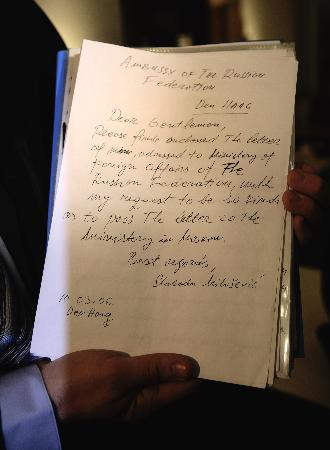 Embassy of The Russian
Federation
Den HAAG
Dear Gentlemen,
Please find enclosed The letter
of mine, adressed to Ministry of
Foreign Affairs of The
Russian Federation, with
my request to be so kind
as to pass The letter to the
Ministery in Moscow.
Best regards,
Slobodan Milošević
03.06.
Den Haag